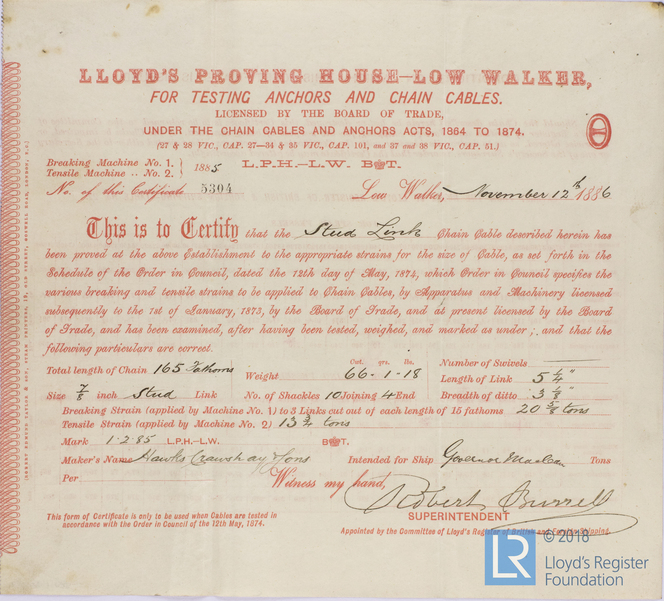 LLOYD'S PROVING HOUSE—LOW WALKER,
FOR TESTING ANCHORS AND CHAIN CABLES.
LICENSED BY THE BOARD OF TRADE,
UNDER THE CHAIN CABLES AND ANCHORS ACTS, 1864 TO 1874.
(27 & 28 VIC., CAP. 27—34 & 35 VIC., CAP. 101, and 37 and 38 VIC., CAP. 51.)
Breaking Machine No. 1. } 1885 L.P.H.—L.W. B T.
Tensile Machine .. No. 2. }
No. of this Certificate 5304 Low Walker, November 12th 1886
This is to Certify that the Stud Link Chain Cable described herein has
been proved at the above Establishment to the appropriate strains for the size of Cable, as set forth in the
Schedule of the Order in Council, dated the 12th day of May, 1874, which Order in Council specifies the
various breaking and tensile strains to be applied to Chain Cables, by Apparatus and Machinery licensed
subsequently to the 1st of January, 1873, by the Board of Trade, and at present licensed by the Board
of Trade, and has been examined, after having been tested, weighed, and marked as under; and that the
following particulars are correct.
Total length of Chain 165 Fathoms
Cwt. qrs. lbs.
Weight 66 - 1 - 18
Number of Swivels
Length of Link 5 1/4"
Size 7/8 inch Stud Link No. of Shackles 10 Joining 4 End Breadth of ditto 3 1/8"
Breaking Strain (applied by Machine No. 1) to 3 Links cut out of each length of 15 fathoms 20 5/8 tons
Tensile Strain (applied by Machine No. 2) 13 3/4 tons
Mark 1.2.85 L.P.H.—L.W. B T.
Maker's Name Hawks Crawshay & Sons Intended for Ship Governor Maclean Tons
Per Witness my hand,
Robert Burrell
SUPERINTENDENT
This form of Certificate is only to be used when Cables are tested in
accordance with the Order in Council of the 12th May, 1874.
Appointed by the Committee of Lloyd's Register of British and Foreign Shipping.
© 2018
LR Lloyd's Register
Foundation